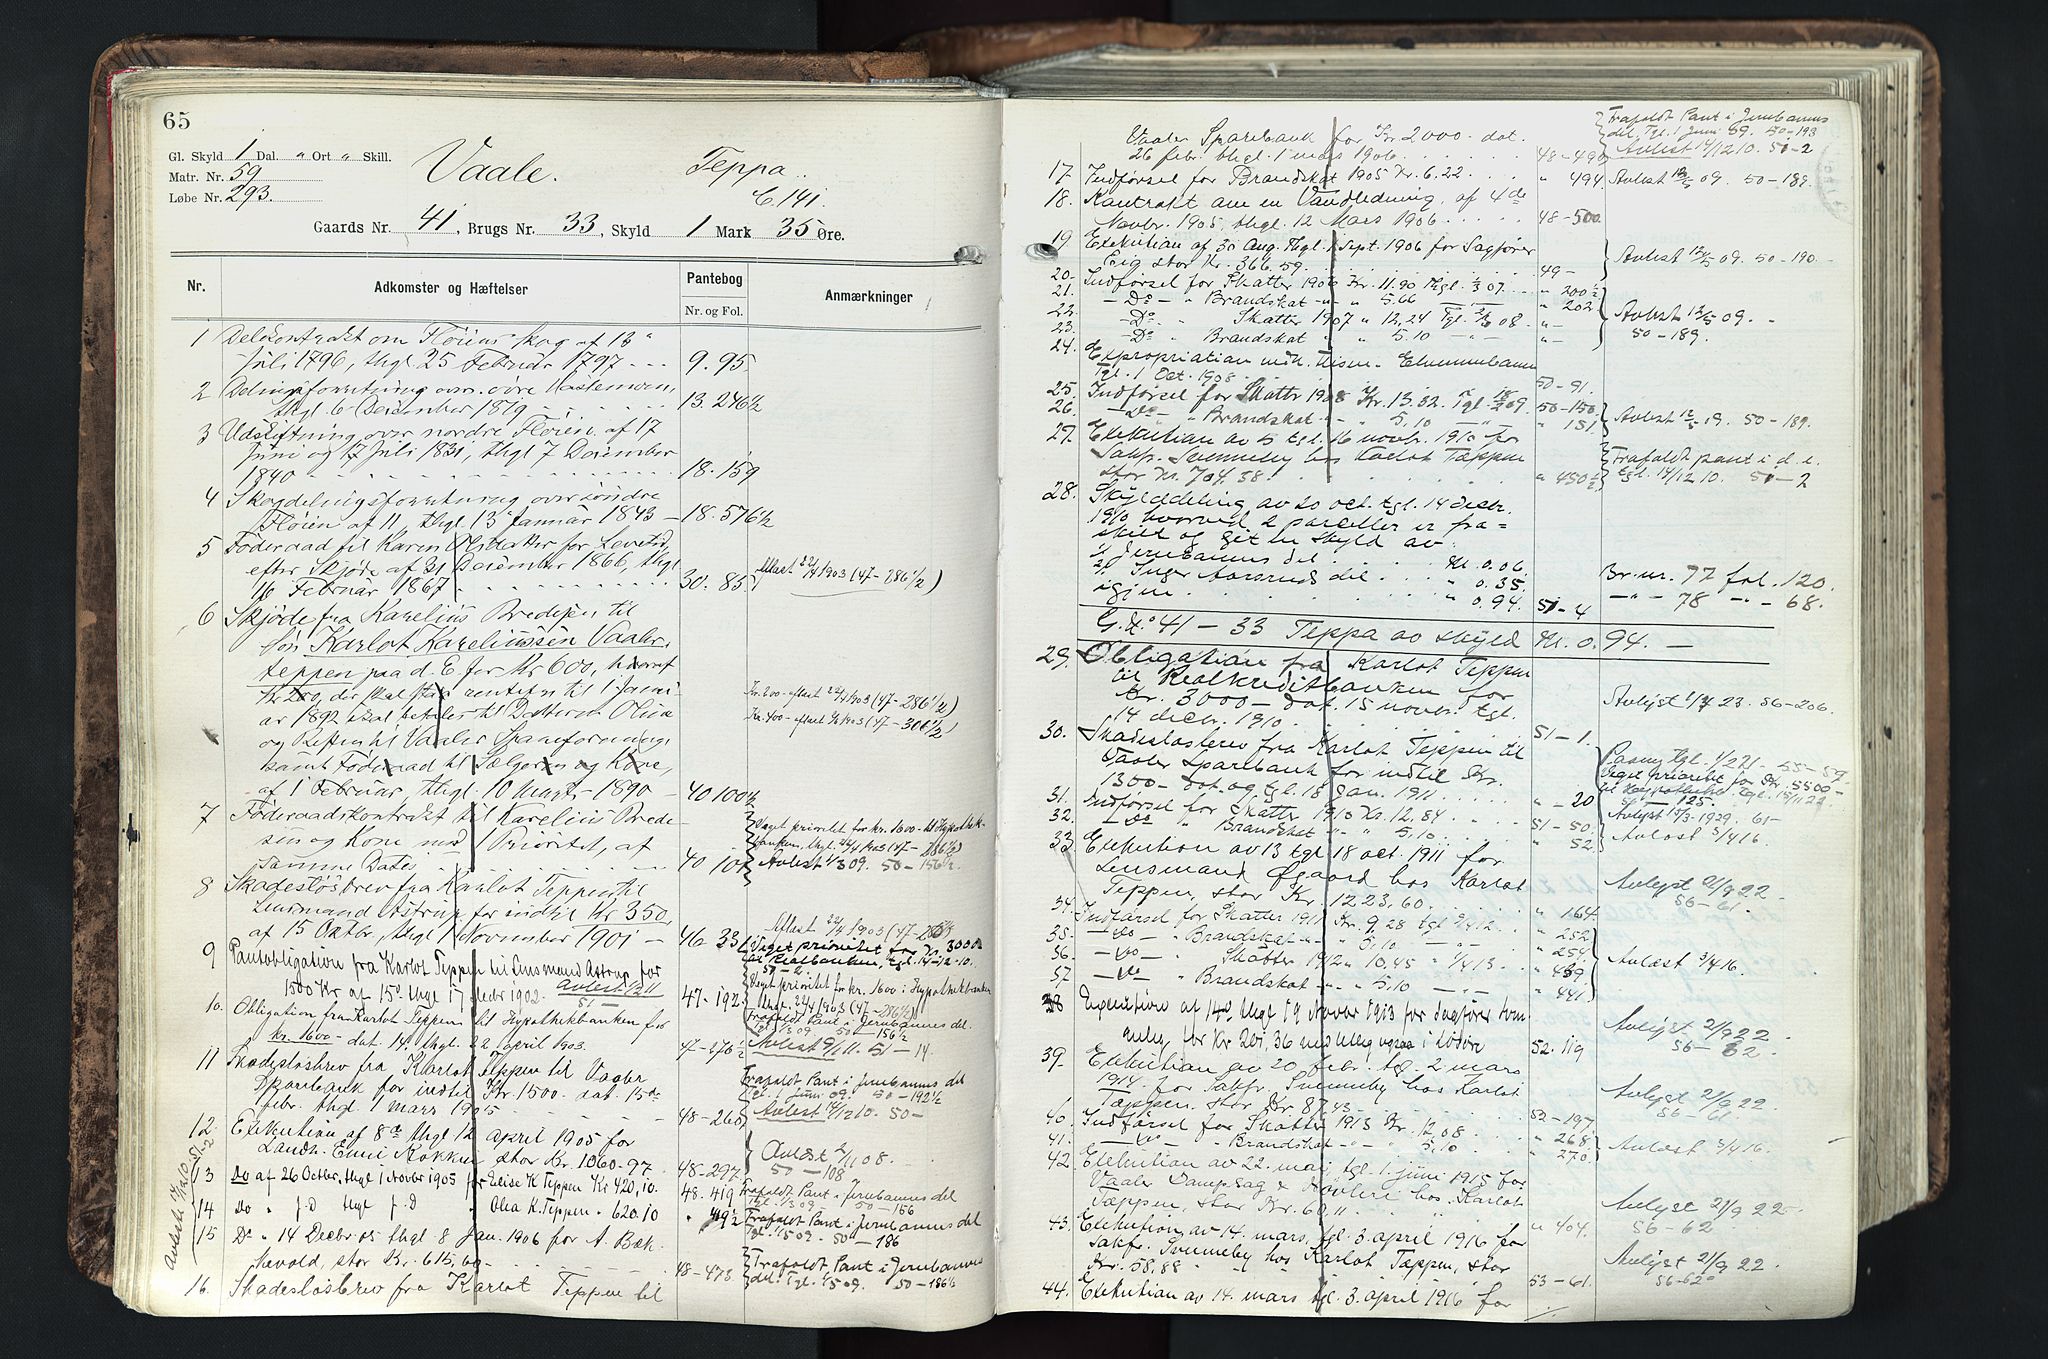 65
Gl. Skyld 1 Dal. " Ort " Skill.
Matr. Nr. 59
Løbe Nr. 293.
Vaale. Teppa.
C. 141.
Gaards Nr. 41, Brugs Nr. 33, Skyld 1 Mark 35 Øre.
Nr. Adkomster og Hæftelser Pantebog Anmærkninger
Nr. og Fol.
1 Delekontrakt om Fløiens skog af 13
Juli 1796, thgl. 25 Februar 1797 9. 95.
2 Delingsforretning over
thgl 6 December 1819 13. 246½
3 Udskiftning over nordre Fløien af 17
Juni og 17 Juli 1831, thgl 7 December
1840 18. 159
4 Skovdelingsforretning over søndre
Fløien af 11, thgl. 13 Januar 1843 18. 576½
5 Føderaad til Karen Olsdatter for Levetid
efter Skjøde af 31 December 1866, thgl
16 Februar 1867 30. 85. Aflæst 22/4 1903 (47-286½)
6 Skjøde fra Karelius Bredesen til
søn Karlot Kareliussen Vaaler,
teppen paa d. E. for Kr 600, hvoraf
Kr 200, der skal staa rentefri til 1 Janu-
ar 1892 skal betales til Datteren Olina
og Resten til Vaaler Spareforening,
samt Føderaad til Sælgeren og Kone,
af 1 Februar, thgl. 10 Marts 1890 40 100½
Kr. 200 - aflæst 22/4 1903 (47-286½)
Kr. 400 - aflæst 1903 (47-301½)
7 Føderaadskontrakt til Karelius Brede-
sen og Kone med 1 Prioritet, af
samme Dato 40 101
Veget prioritet for kr. 1600 - til Hypothek-
banken, thgl. 22/4 1903 (47-286½)
Avlæst 1/3 09. 50-156½.
8 Skadesløsbrev fra Karlot Teppen til
Lensmand Astrup for indtil Kr 350,
af 15 Oktbr., thgl 1 November 1901 46. 33
Aflæst 22/4 1903 (47-
9 Pantobligation fra Karlot Teppen til Lensmand Astrup for
1500 Kr af 15 thgl 17 1902. Avlæst 12/2 11 47-192
51-
Veget prioritet for Kr. 3000
til Realbanken, tgl. 14-12-10.
51-2
Veget prioritet for kr. 1600 i Hypothekbanken
thgl. 22/4 1903 (47-286½)
10. Obligation fra Karlot Teppen til Hypothekbanken for
kr. 1600 - dat. 14. thgl. 22 april 1903. 47-276½
Frafaldt Pant i Jernbannens del.
tgl. 1/3 09. 50-156½
Avlæst 9/1 11. 51-14.
11 Skadesløsbrev fra Karlot Teppen til Vaaler
Sparebank for indtil Kr. 1500. dat. 15de
febr. thgl. 1 mars 1905 48-260
Frafaldt Pant i Jernbannens del
tgl. 1 Juni 09. 50-192½
Avlæst 14/12 10. 50-
12. Exekution af 8de thgl 12 april 1905 for
Landh. Emil Kokkin stor Kr. 1060-97. 48-297.
Avlæst 08.
50-108
13 Do af 26 Octbr, thgl 1 Novbr 1905 for Elise K. Teppen Kr 420,10. 48. 419
Frafaldt Pant i Jernbannens del
tgl. 1/3 09 50-156
14 Do " f.d. thgl f.d. " Olea K. Teppen " 620.10
Frafaldt Pant i Jernbannens del
50-186
15 Do " 14 Decbr 05 thgl 8 Jan. 1906 for A. Bæk-
kevold, stor Kr. 615,60 48-473
Frafaldt Pant i Jernbannens
del. Tgl. 1/5 09. 50-186½
Avlæst 14/12 10 51-2
16. Skadesløsbrev fra Karlot Teppen til
Vaaler Sparebank for Kr. 2000 - dat.
26 febr. thgl. 1 mars 1906. 48-490
Frafaldt Pant i Jernbannens
del. Tgl. 1 Juni 09. 50-193
Avlæst 14/12 10. 51-2
17. Indførsel for Brandskat 1905 Kr. 6.22 " 494 Avlæst 12/5 09. 50-189.
18. Kontrakt om en Vandledning, af 4de
Novbr. 1905, thgl. 12 Mars 1906 48-500
19 Exekution af 30 Aug. thgl. 1 Sept. 1906 for Sagfører
Erig stor Kr. 366.59. 49- Avlæst 12/5 09. 50-190.
20. Indførsel for Skatter 1906 Kr. 11.90 thgl. 07 " 200½
21. - Do - " Brandskat - " 5.66 " 202
22. - Do " Skatter 1907 " 12,24 Tgl. 08. "-
23. - Do " Brandskat " 5.10 "-
Avlæst 12/5 09.
50-189.
24. Expropriation vedk. Elverumbanen
Tgl. 1 Oct. 1908 50-91.
25. Indførsel for Skatter 1908 Kr. 13.32. Tgl. 09. 50-150
26. - Do - " Brandskat - " 5,10 " 151
Avlæst 12/5 09. 50-189.
27. Exekution av 5 tgl. 16 novbr. 1910 for
Sakf. Svenneby hos Karlot Tæppen
stor Kr. 704.58. " 450½
Frafaldt pant i d. e.
tgl. 14/12 10. 51-2
28. Skylddeling av 20 oct. tgl. 14 decbr.
1910 hvorved 2 parceller er fra=
skilt og git en skyld av:
1/ Jernbannens del Mk. 0.06. Br. nr. 77 fol. 120.
2/ Inger Aarsruds del " 0.35. - " - 78 - " - 68.
igjen " 0.94. 51-4
G. No 41-33 Teppa av skyld Mk. 0.94.-
29. Obligation fra Karlot Teppen
til Realkreditbanken for
Kr. 3000 - dat. 15 novbr. tgl.
14 decbr. 1910. 51-1.
Avlyst 23. 56-206.
30. Skadesløsbrev fra Karlot Teppen til
Vaaler Sparebank for indtil Kr.
1300 - dat. og tgl. 18 jan. 1911 "-20
Veget prioritet for Kr. 5500 -
Avlyst 1929. 61-
31. Indførsel for Skatter 1910 Kr. 12,84 51-50.
32. - Do " Brandskat " 5,10 " 52.
Avlæst 3/4 16.
33. Exekution av 13 tgl. 18 oct. 1911 for
Lensmand Øgaard hos Karlot
Teppen, stor Kr. 1223,60. " 164.
Avlyst 21/9 22.
56-61.
34. Indførsel for Skatter 1911 Kr. 9,28 tgl 12. " 252
35. - Do - " Brandskat " 5,10 " 254
36. - Do - " Skatter 1912 " 10,45 13. " 439
37 - Do - " Brandskat " 5,10 " 441.
Avlæst 3/4 16.
38 Exekution af 14de thgl 19 Novbr 1913 for Sagfører Svenn-
eby for Kr 201,36 52. 119
Avlyst 21/9 22
56-62.
39. Exekution av 20 febr. tgl. 2 mars
1914 for Sakf. Svenneby hos Karlot
Tæppen. stor Kr. 87,43 52-197.
Avlyst 21/9 22.
56-61
40. Indførsel for Skatter 1913 Kr. 12 08 " 268
41. - Do - " Brandskat " 5,10 " 270.
Avlæst 3/4 16.
42. Exekution av 22. mai, tgl. 1 juni 1915 for
Vaaler Dampsag & Høvleri hos Karlot
Tæppen, stor Kr. 60,11 " 404.
Avlyst 21/9 22
56-62
43. Exekution av 14. mars, tgl. 3. april 1916 for
Sakf. Svenneby hos Karlot Tæppen, stor
Kr. 58,88 53-61.
Avlyst 21/9 22.
56-62
44. Exekution av 14. mars tgl. 3. april 1916 for